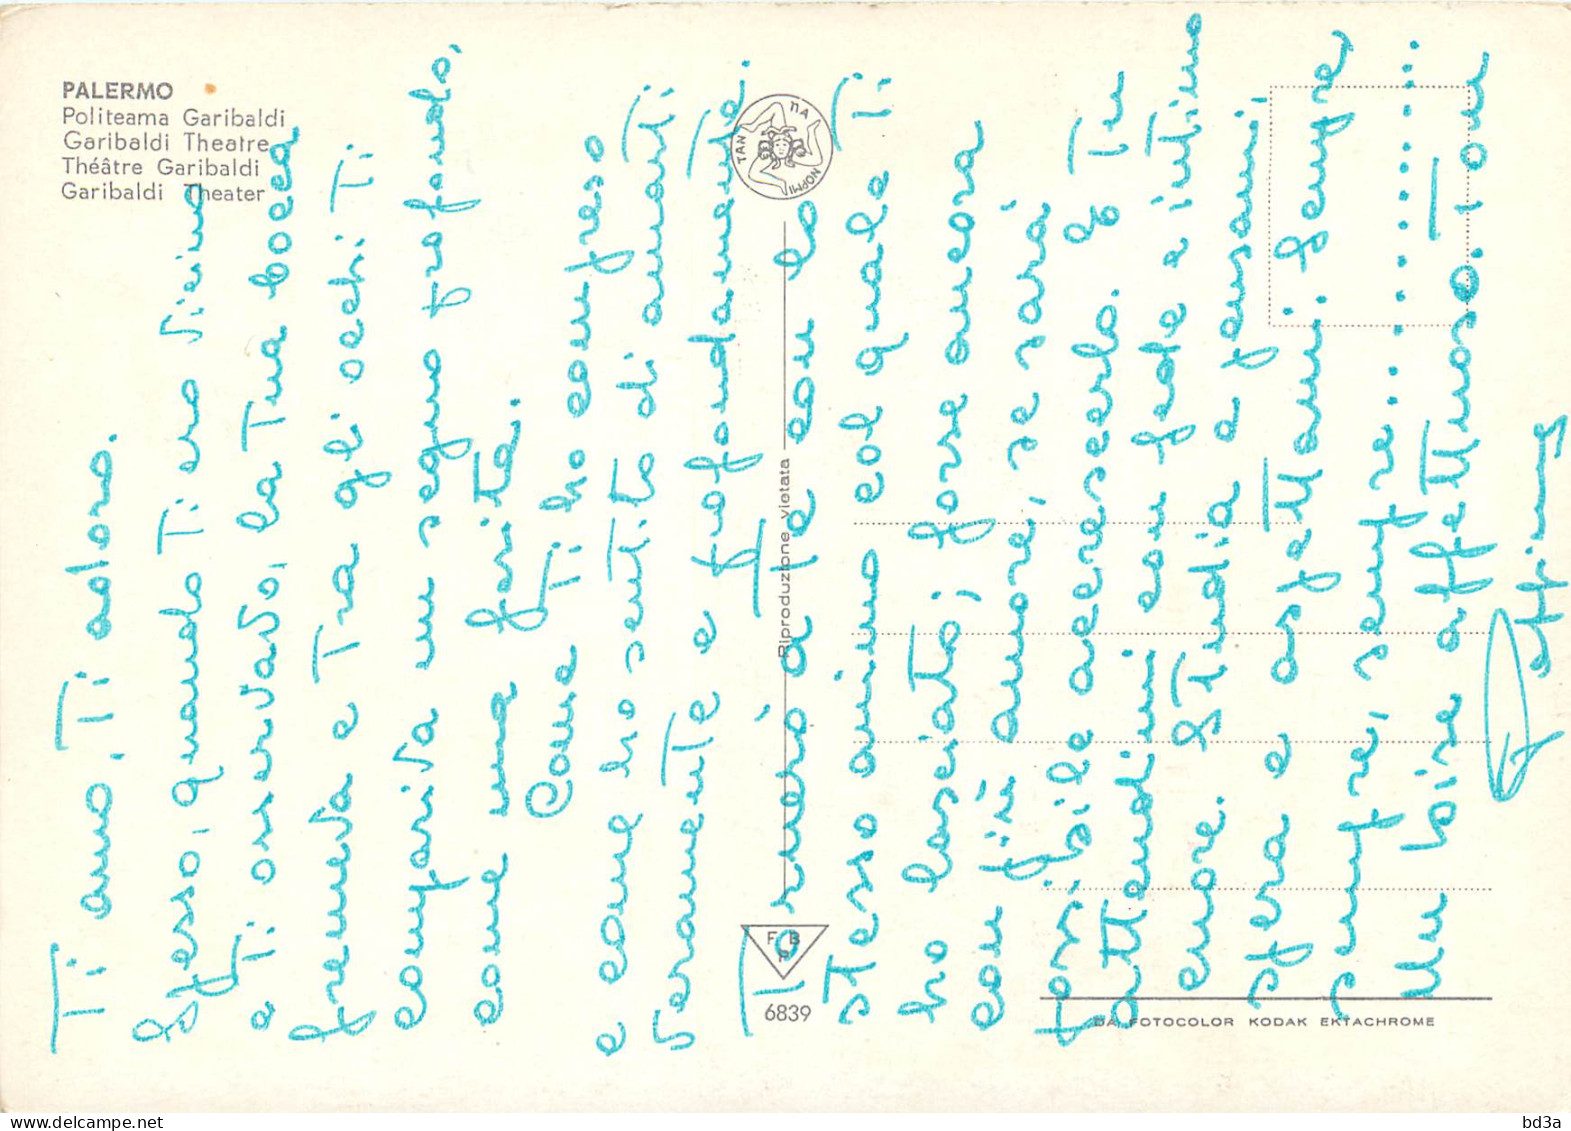 PALERMO
Politeama Garibaldi
Garibaldi Theatre
Théâtre Garibaldi
Garibaldi Theater
TAN NA NOPMI
Riproduzione vietata
F B P
6839
DA FOTOCOLOR KODAK EKTACHROME
Ti amo, Ti adoro.
Spesso, quando Ti ero vicino
e Ti osservavo, la Tua bocca
fremeva e Tra gli occhi Ti
compariva un segno profondo,
come una ferita.
Come Ti ho compreso
e come ho sentito di amarti
veramente e profondamente.
Tornerò a Te con lo
stesso animo col quale Ti
ho lasciato; forse ancora
con più amore, se sarà
possibile accrescerlo. E Tu
attendimi con fede e intimo
cuore. Studia e pensami,
spera e aspettami. Sempre
sempre, sempre...............
Un bise affettuoso. Tou
bd3a